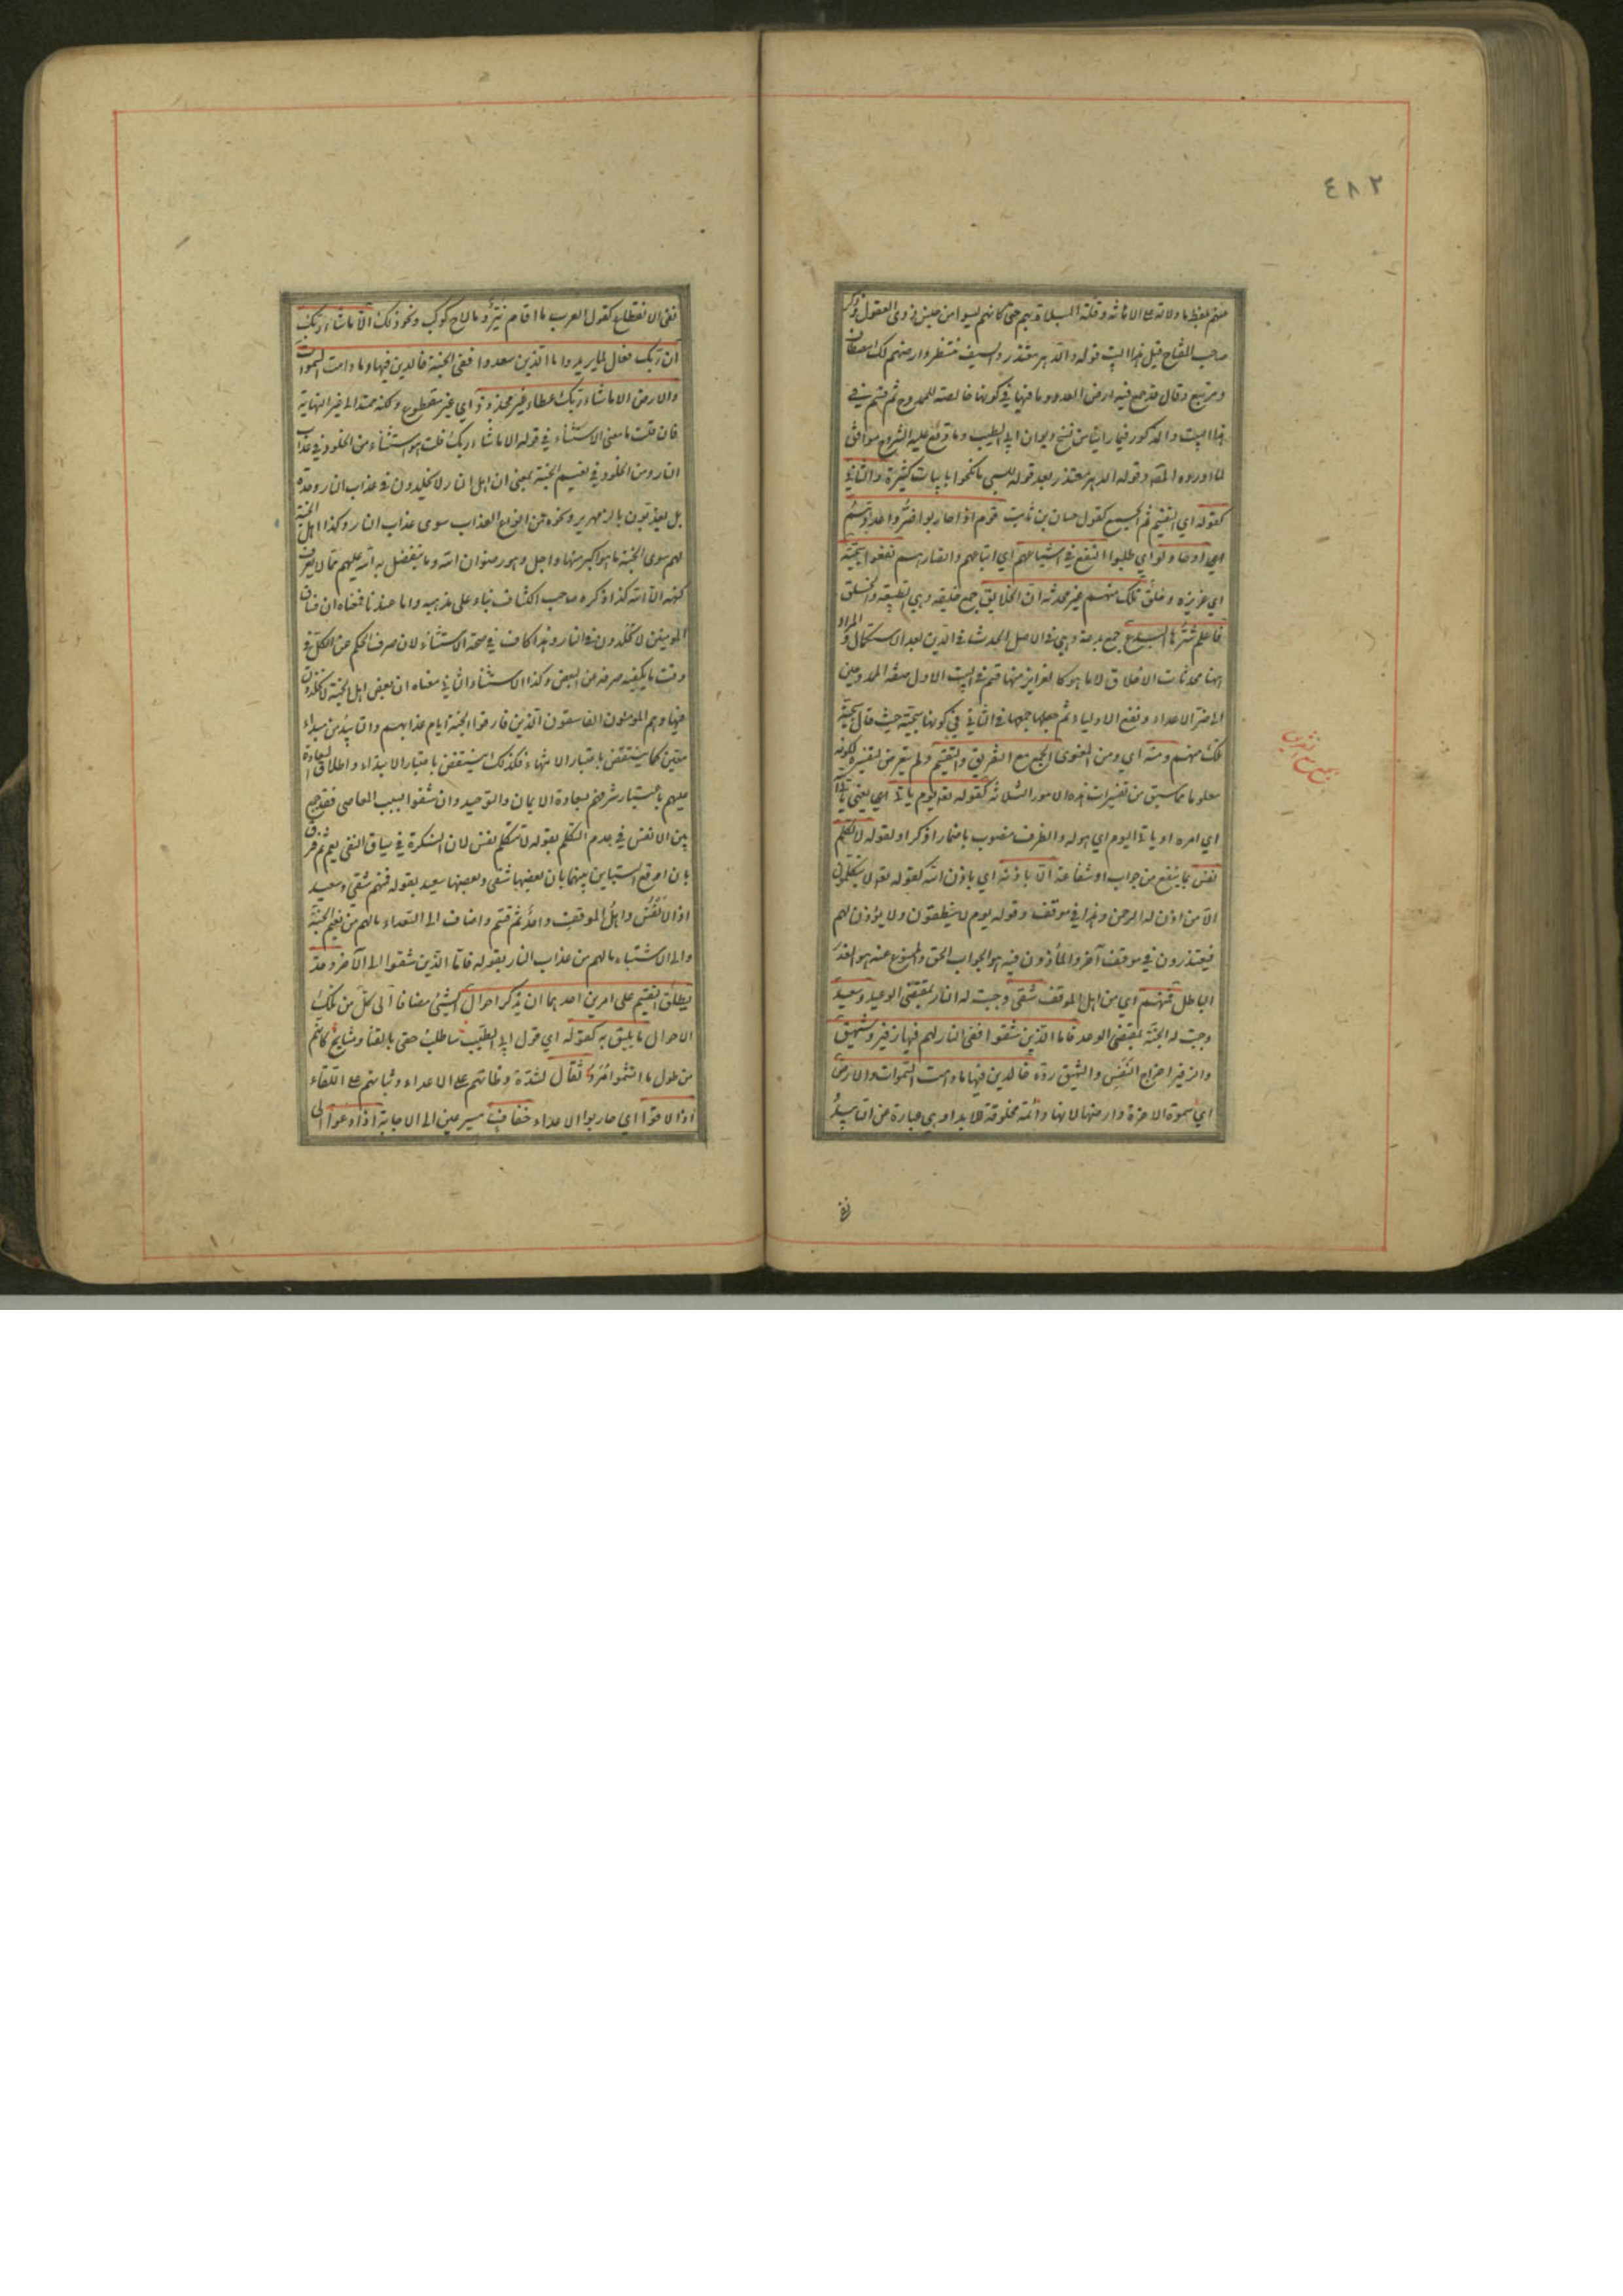 ٤٨٢
منهم بلفظ ما دلالة على الاهانة وقلة المبالاة بهم حتى كانهم ليسوا من جنس ذوى العقول وذكر
صاحب المفتاح قبل هذا البيت قوله والدهر معتذر والسيف منتظر وارضهم لك مصطاف
ومرتبع وقال قد جمع فيه ارض العدو وما فيها في كونها خالصة للممدوح ثم قسم في
هذا البيت والمذكور فيما رأينا من نسخ ديوان ابى الطيب وما وقع عليه الشروح موافق
لما اورده المص وقوله الدهر معتذر بعد قوله للسبى ما نكحوا بابيات كثيرة والثانى
كقوله اي التقسيم ثم الجمع كقول حسان بن ثابت قوم اذا حاربوا ضروا عدوهم
اى او حاولوا اي طلبوا النفع في اشياعهم اي اتباعهم وانصارهم نفعوا سجية
اي غريزة وخلق تلك منهم غير محدثة ان الخلايق جمع خليقة وهى الطبيعة والخلق
فاعلم شرها البدع جمع بدعة وهى في الاصل الحدث في الدين بعد الاستكمال والمراد
ههنا محدثات الاخلاق لا ما هو كالغرايز منها قسم في البيت الاول صفة الممدوحين
الى ضر الاعداء ونفع الاولياء ثم جمعها في الثانى في كونها سجية حيث قال سجية
تلك منهم ومنه اي ومن المعنوى الجمع مع التفريق والتقسيم ولم يتعرض لتفسيره لكونه
معلوما مما سبق من تفسيرات هذه الامور الثلاثة كقوله تع يوم يأت اى يعنى يأتى الله
اي امره او يأتى اليوم اي هوله والظرف منصوب باضمار اذكر او بقوله لا تكلم
نفس بما ينفع من جواب او شفاعة الا باذنه اي باذن الله كقوله تع لا يتكلمون
الا من اذن له الرحمن وهذا في موقف وقوله يوم لا ينطقون ولا يؤذن لهم
فيعتذرون في موقف آخر والمأذون فيه هو الجواب الحق والممنوع عنه هو العذر
الباطل فمنهم اي من اهل الموقف شقى وجبت له النار بمقتضى الوعيد وسعيد
وجبت له الجنة بمقتضى الوعد فاما الذين شقوا ففى النار لهم فيها زفير وشهيق
والزفير اخراج النفس والشهيق رده خالدين فيها ما دامت السموات والارض
اي سموة الآخرة وارضها لانها دائمة مخلوقة للابد او هي عبارة عن التأبيد
نفى
جمع مع التفريق
نفى الانقطاع كقول العرب ما اقام ثبير وما لاح كوكب ونحو ذلك الا ما شاء ربك
ان ربك فعال لما يريد واما الذين سعدوا ففى الجنة خالدين فيها ما دامت السموات
والارض الا ما شاء ربك عطاء غير مجذوذ اي غير مقطوع ولكنه ممتد الى غير النهاية
فان قلت ما معنى الاستثناء في قوله الا ما شاء ربك قلت هو استثناء من الخلود في عذاب
النار ومن الخلود في نعيم الجنة بمعنى ان اهل النار لا يخلدون في عذاب النار وحده
بل يعذبون بالزمهرير ونحوه من انواع العذاب سوى عذاب النار وكذا اهل الجنة
لهم سوى الجنة ما هو اكبر منها واجل وهو رضوان الله وما يتفضل به الله عليهم مما لا يعرف
كنهه الا الله كذا ذكره صاحب الكشاف بناء على مذهبه واما عندنا فمعناه ان فساق
المؤمنين لا يخلدون في النار وهذا كاف في صحة الاستثناء لان صرف الحكم عن الكل في
وقت ما يكفيه صرفه عن البعض وكذا الاستثناء الثانى معناه ان بعض اهل الجنة لا يخلدون
فيها وهم المؤمنون الفاسقون الذين فارقوا الجنة ايام عذابهم والتأبيد من مبداء
معين كما ينتقض باعتبار الانتهاء فكذلك ينتقض باعتبار الابتداء واطلاق السعادة
عليهم باعتبار تشرفهم بسعادة الايمان والتوحيد وان شقوا بسبب المعاصى فقد جمع
بين الانفس في عدم التكلم بقوله لا تكلم نفس لان النكرة في سياق النفى يعم ثم فرق
بان اوقع التباين بينهما بان بعضها شقى وبعضها سعيد بقوله فمنهم شقى وسعيد
اذ الانفس واهل الموقف واحد ثم قسم واضاف الى السعداء ما لهم من نعيم الجنة
والى الاشقياء ما لهم من عذاب النار بقوله فاما الذين شقوا الى الآخر وقد
يطلق التقسيم على امرين احدهما ان يذكر احوال الشئ مضافا الى كل من تلك
الاحوال ما يليق به كقوله اي قول ابى الطيب ساطلب حقى بالقنا ومشايخ كانهم
من طول ما التثموا مرد ثقال لشدة وطأتهم على الاعداء وثباتهم على اللقاء
اذا لاقوا اي حاربوا الاعداء خفاف مسرعين الى الاجابة اذا دعوا الى